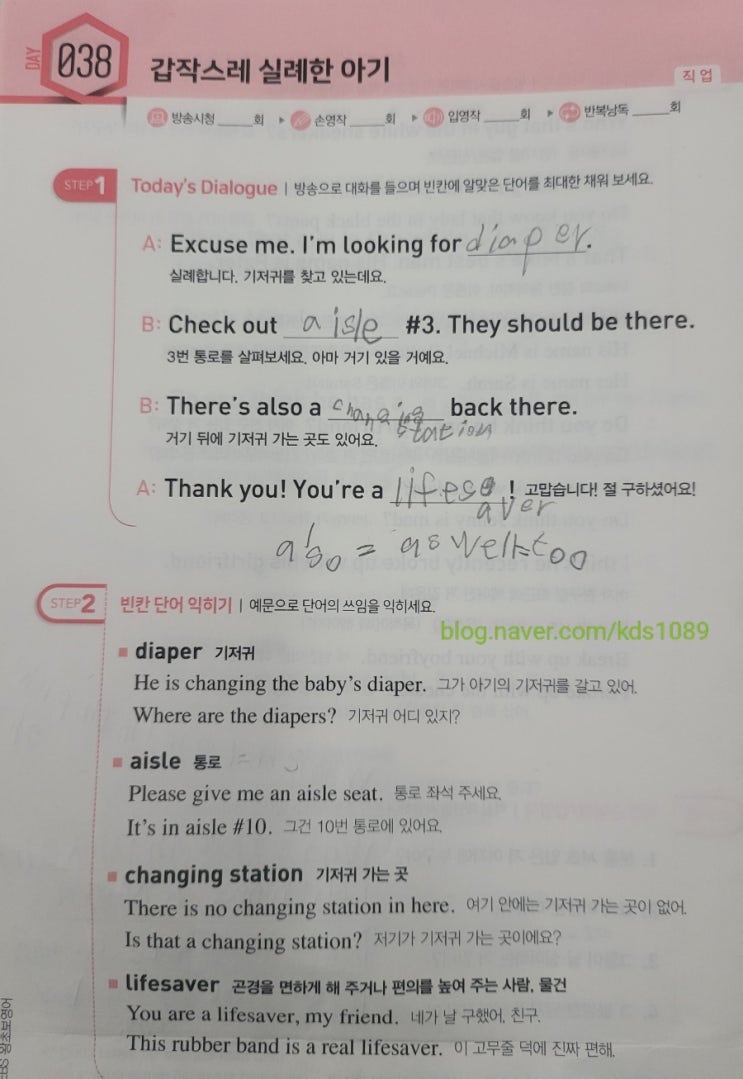 DAY 038 갑작스레 실례한 아기
직업
방송시청 _____회 ▶ 손영작 _____회 ▶ 입영작 _____회 ▶ 반복낭독 _____회
STEP 1 Today's Dialogue | 방송으로 대화를 들으며 빈칸에 알맞은 단어를 최대한 채워 보세요.
A: Excuse me. I'm looking for diaper.
실례합니다. 기저귀를 찾고 있는데요.
B: Check out aisle #3. They should be there.
3번 통로를 살펴보세요. 아마 거기 있을 거예요.
B: There's also a changing station back there.
거기 뒤에 기저귀 가는 곳도 있어요.
A: Thank you! You're a lifesaver! 고맙습니다! 절 구하셨어요!
also = as well = too
STEP 2 빈칸 단어 익히기 | 예문으로 단어의 쓰임을 익히세요.
blog.naver.com/kds1089
diaper 기저귀
He is changing the baby's diaper. 그가 아기의 기저귀를 갈고 있어.
Where are the diapers? 기저귀 어디 있지?
aisle 통로
Please give me an aisle seat. 통로 좌석 주세요.
It's in aisle #10. 그건 10번 통로에 있어요.
changing station 기저귀 가는 곳
There is no changing station in here. 여기 안에는 기저귀 가는 곳이 없어.
Is that a changing station? 저기가 기저귀 가는 곳이에요?
lifesaver 곤경을 면하게 해 주거나 편의를 높여 주는 사람, 물건
You are a lifesaver, my friend. 네가 날 구했어, 친구.
This rubber band is a real lifesaver. 이 고무줄 덕에 진짜 편해.
EBS 왕초보영어